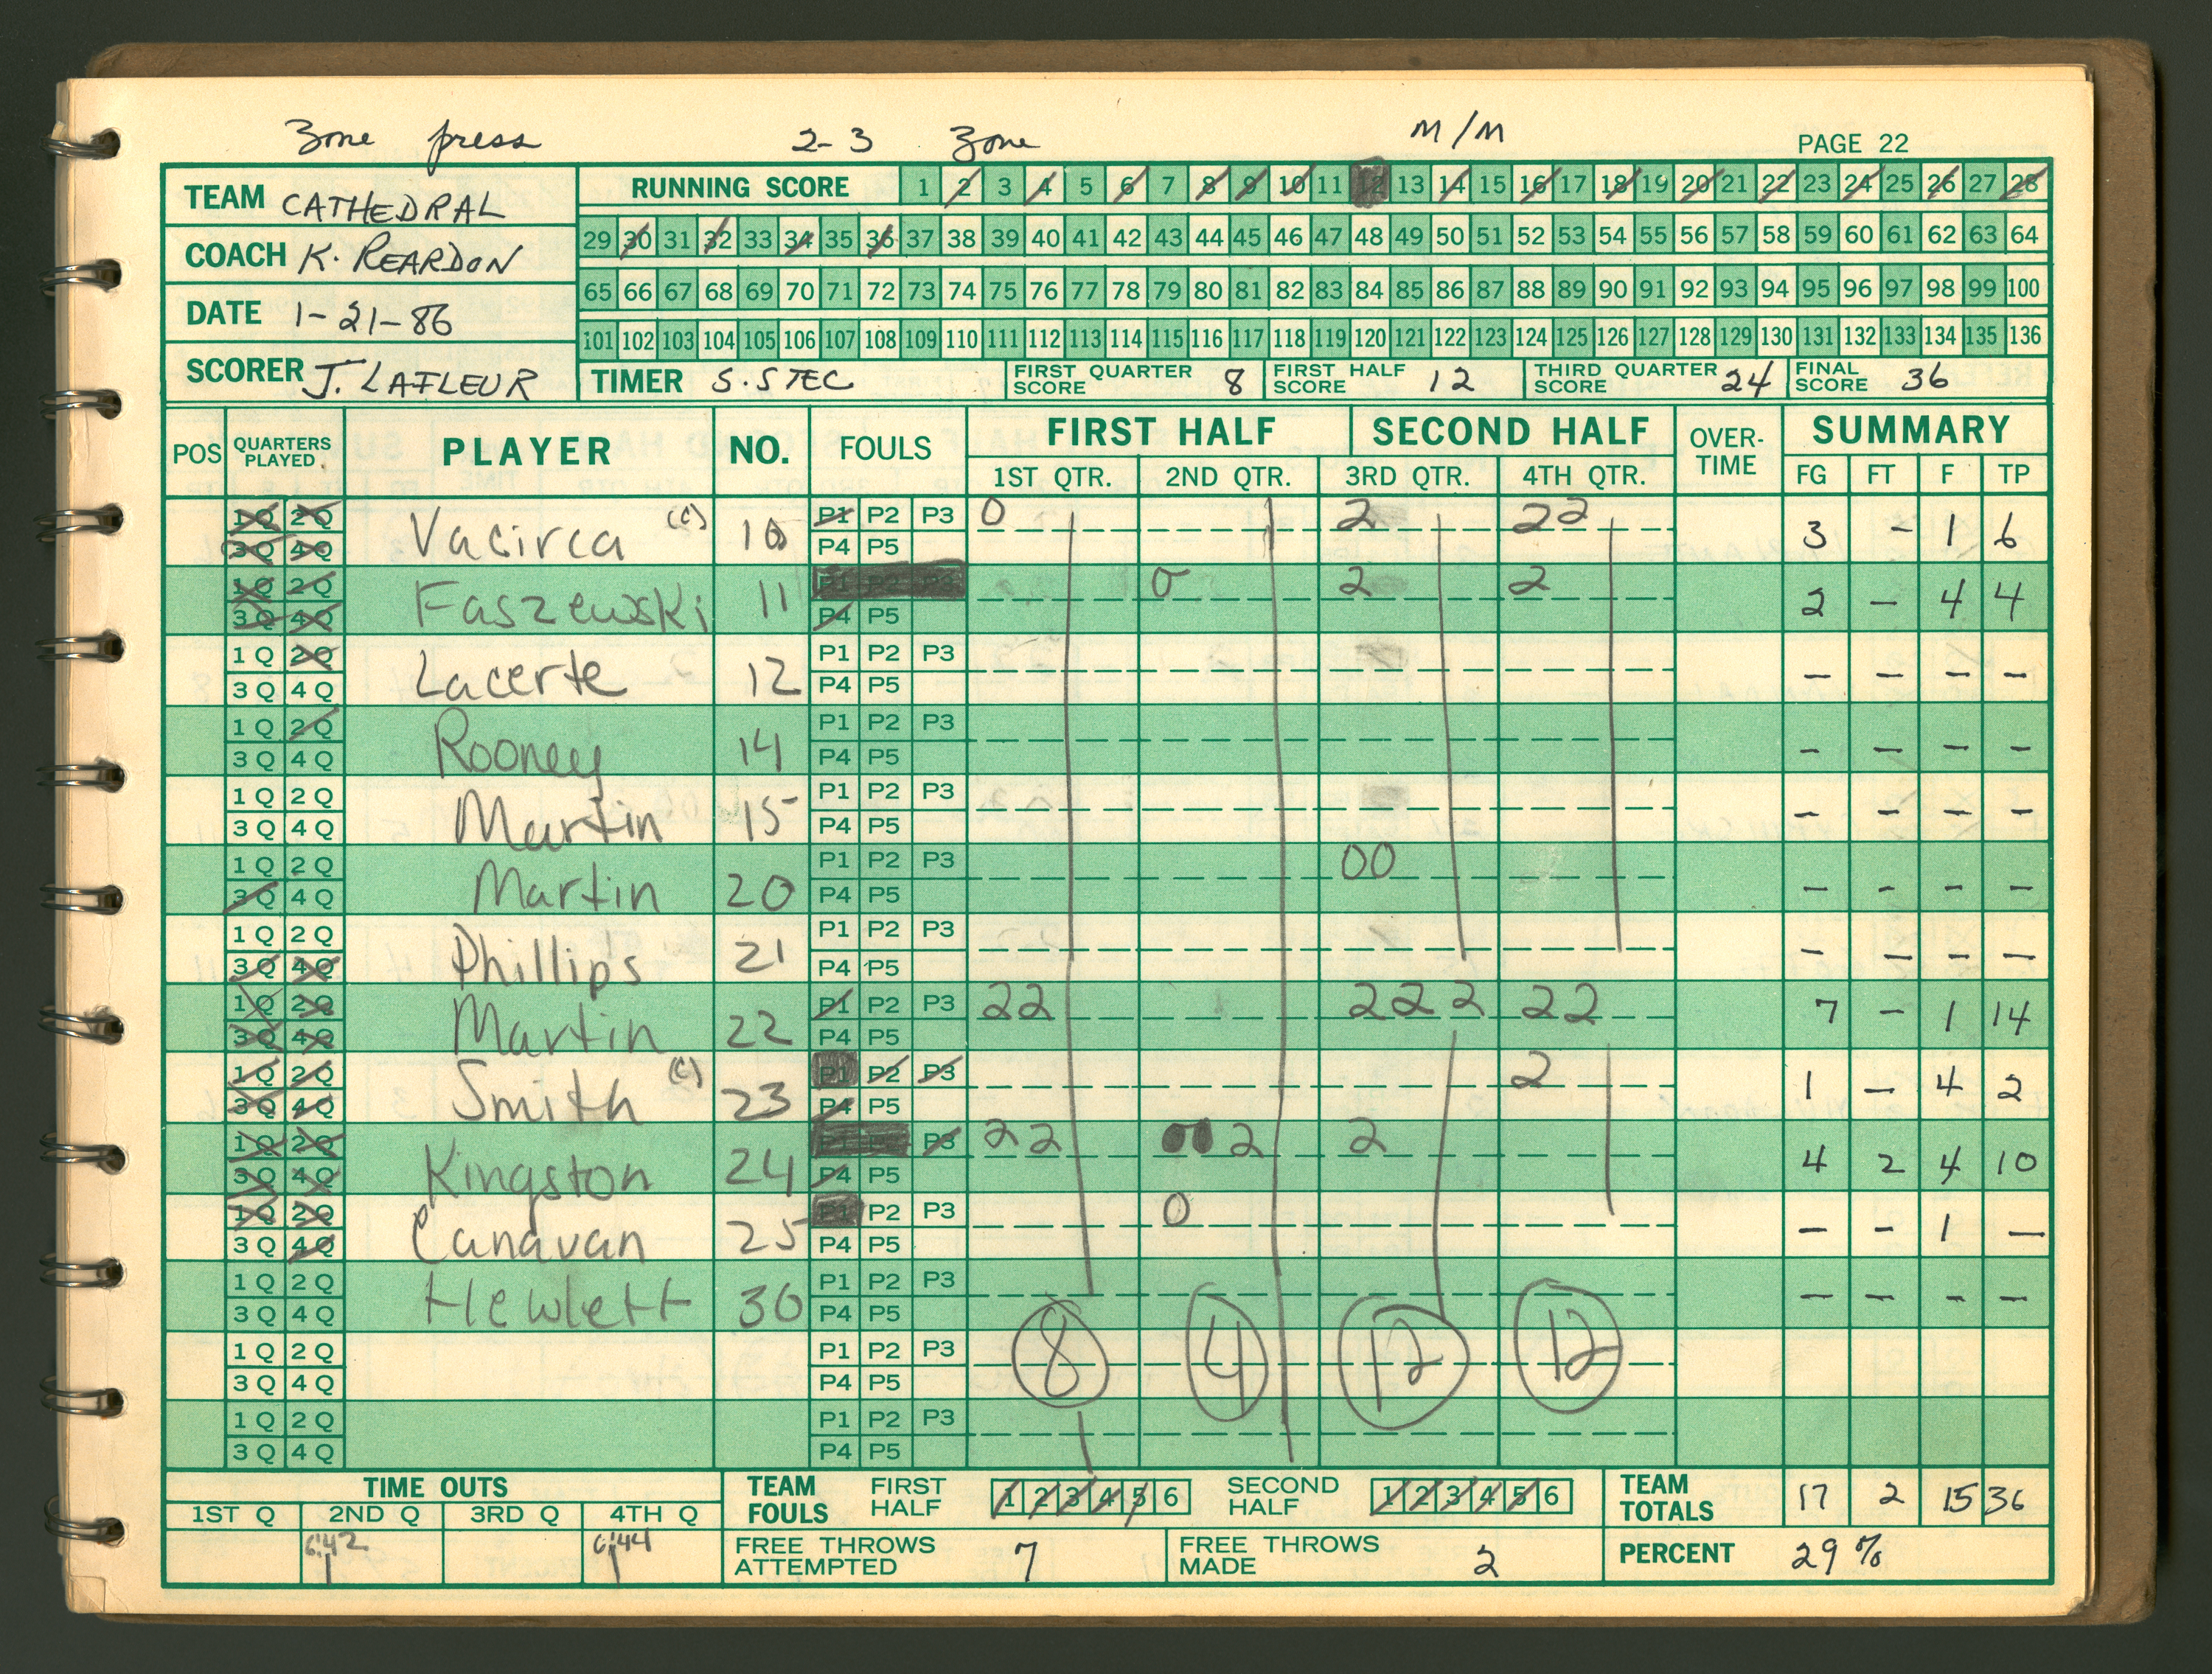 Zone press 2-3 Zone M/M PAGE 22
TEAM CATHEDRAL
COACH K. REARDON
DATE 1-21-86
SCORER J. LAFLEUR
RUNNING SCORE 1 2 3 4 5 6 7 8 9 10 11 12 13 14 15 16 17 18 19 20 21 22 23 24 25 26 27 28
29 30 31 32 33 34 35 36 37 38 39 40 41 42 43 44 45 46 47 48 49 50 51 52 53 54 55 56 57 58 59 60 61 62 63 64
65 66 67 68 69 70 71 72 73 74 75 76 77 78 79 80 81 82 83 84 85 86 87 88 89 90 91 92 93 94 95 96 97 98 99 100
101 102 103 104 105 106 107 108 109 110 111 112 113 114 115 116 117 118 119 120 121 122 123 124 125 126 127 128 129 130 131 132 133 134 135 136
TIMER S. STEC FIRST QUARTER SCORE 8 FIRST HALF SCORE 12 THIRD QUARTER SCORE 24 FINAL SCORE 36
POS QUARTERS PLAYED PLAYER NO. FOULS FIRST HALF SECOND HALF OVER-TIME SUMMARY
1ST QTR. 2ND QTR. 3RD QTR. 4TH QTR. FG FT F TP
1 Q 2 Q Vacirca (C) 10 P1 P2 P3 0 2 22 3 - 1 6
3 Q 4 Q P4 P5
1 Q 2 Q Faszewski 11 P1 P2 P3 0 2 2 2 - 4 4
3 Q 4 Q P4 P5
1 Q 2 Q Lacerte 12 P1 P2 P3 - - - -
3 Q 4 Q P4 P5
1 Q 2 Q Rooney 14 P1 P2 P3 - - - -
3 Q 4 Q P4 P5
1 Q 2 Q Martin 15 P1 P2 P3 - - - -
3 Q 4 Q P4 P5
1 Q 2 Q Martin 20 P1 P2 P3 00 - - - -
3 Q 4 Q P4 P5
1 Q 2 Q Phillips 21 P1 P2 P3 - - - -
3 Q 4 Q P4 P5
1 Q 2 Q Martin 22 P1 P2 P3 22 222 22 7 - 1 14
3 Q 4 Q P4 P5
1 Q 2 Q Smith (C) 23 P1 P2 P3 2 1 - 4 2
3 Q 4 Q P4 P5
1 Q 2 Q Kingston 24 P1 P2 P3 22 2 2 4 2 4 10
3 Q 4 Q P4 P5
1 Q 2 Q Canavan 25 P1 P2 P3 0 - - 1 -
3 Q 4 Q P4 P5
1 Q 2 Q Hewlett 30 P1 P2 P3 - - - -
3 Q 4 Q P4 P5
1 Q 2 Q P1 P2 P3 8 4 12 12
3 Q 4 Q P4 P5
1 Q 2 Q P1 P2 P3
3 Q 4 Q P4 P5
TIME OUTS
1ST Q 2ND Q 3RD Q 4TH Q
6:42 6:44
TEAM FOULS FIRST HALF 1 2 3 4 5 6 SECOND HALF 1 2 3 4 5 6 TEAM TOTALS 17 2 15 36
FREE THROWS ATTEMPTED 7 FREE THROWS MADE 2 PERCENT 29%